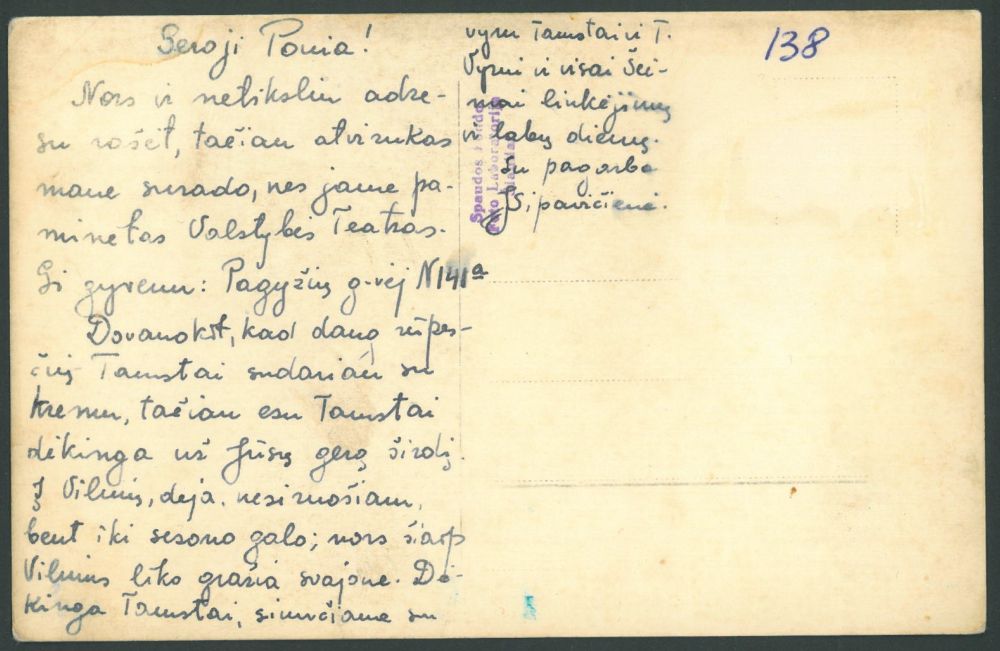 Geroji Ponia!
Nors ir netikslin adre-
su rašėt, tačiau atvirukas
mane surado, nes jame pa-
minėtas Valstybės Teatras.
Gi gyvenu: Pagyžių g-vėj N141a
Dovanokit, kad daug rūpes-
čių Tamstai sudariau su
kremu, tačiau esu Tamstai
dėkinga už Jūsų gerą širdį.
Į Vilnių, deja, nesiruošiam,
bent iki sesono galo; nors šiaip
Vilnius liko graži svajonė. Dė-
kinga Tamstai, siunčiame su
vyru Tamstai ir T.
Vyrui ir visai Šei-
mai linkėjimų
ir labų dienų.
Su pagarba
Sipavičienė.
138
Spaudos Fondo
Foto Laboratorija